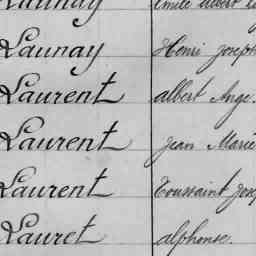 Launay Emile Albert
Launay Henri Joseph
Laurent Albert Ange.
Laurent Jean Marie
Laurent Toussaint Jose
Lauret Alphonse.